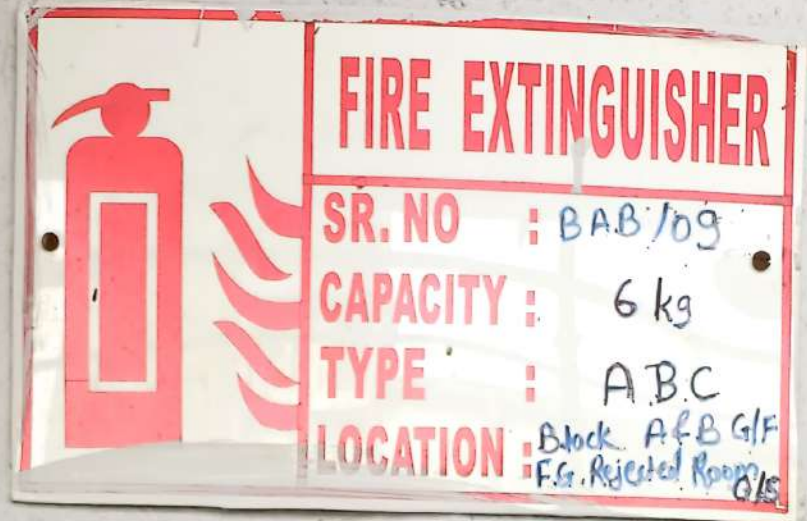 FIRE EXTINGUISHER
SR. NO : BAB/09
CAPACITY : 6 kg
TYPE : A.B.C
LOCATION : Block A&B G/F
F.G. Rejected Room
O/S